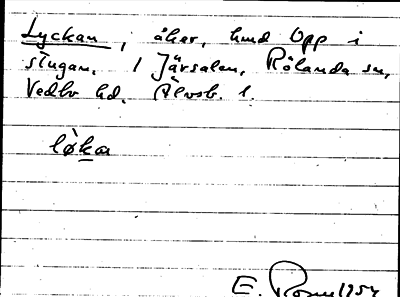 Lyckan, åker, hund Upp i
stugan. / Järsalen, Rölanda sn,
Vedbo hd. Älvsb. l.
lø̀ka
E. 1954